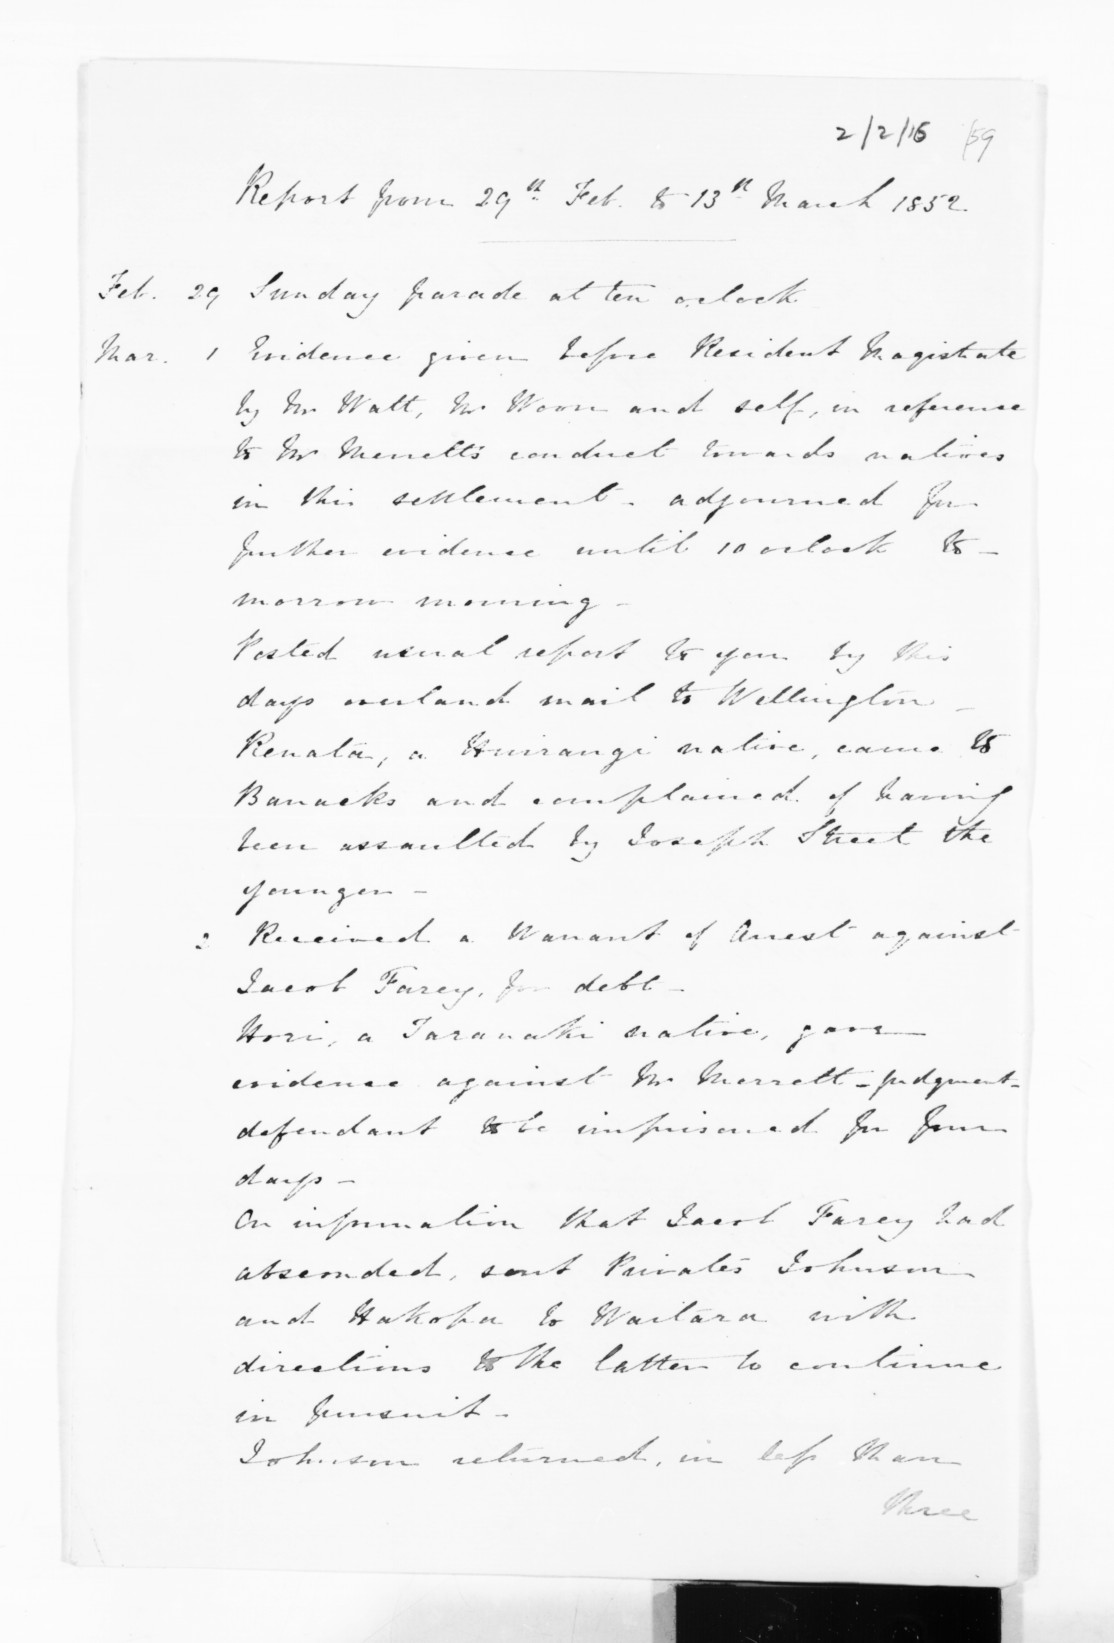 2/2/16 /59
Report from 29th Feb. to 13th March 1852.
Feb. 29 Sunday parade at ten oclock
Mar. 1 Evidence given before Resident Magistrate
by Mr Watt, Mr Woon and self, in reference
to Mr Merrett's conduct towards natives
in this settlement - adjourned for
further evidence until 10 oclock to-
morrow morning -
Posted usual report to you by this
days overland mail to Wellington -
Renata, a Huirangi native, came to
Barracks and complained of having
been assaulted by Joseph Street the
younger -
2 Received a Warrant of Arrest against
Jacob Farey, for debt -
Hori, a Taranaki native, gave
evidence against Mr Merrett - judgment -
defendant to be imprisoned for four
days -
On information that Jacob Farey had
absconded, sent Privates Johnson
and Hakopa to Waitara with
directions to the latter to continue
in pursuit -
Johnson returned, in less than
three